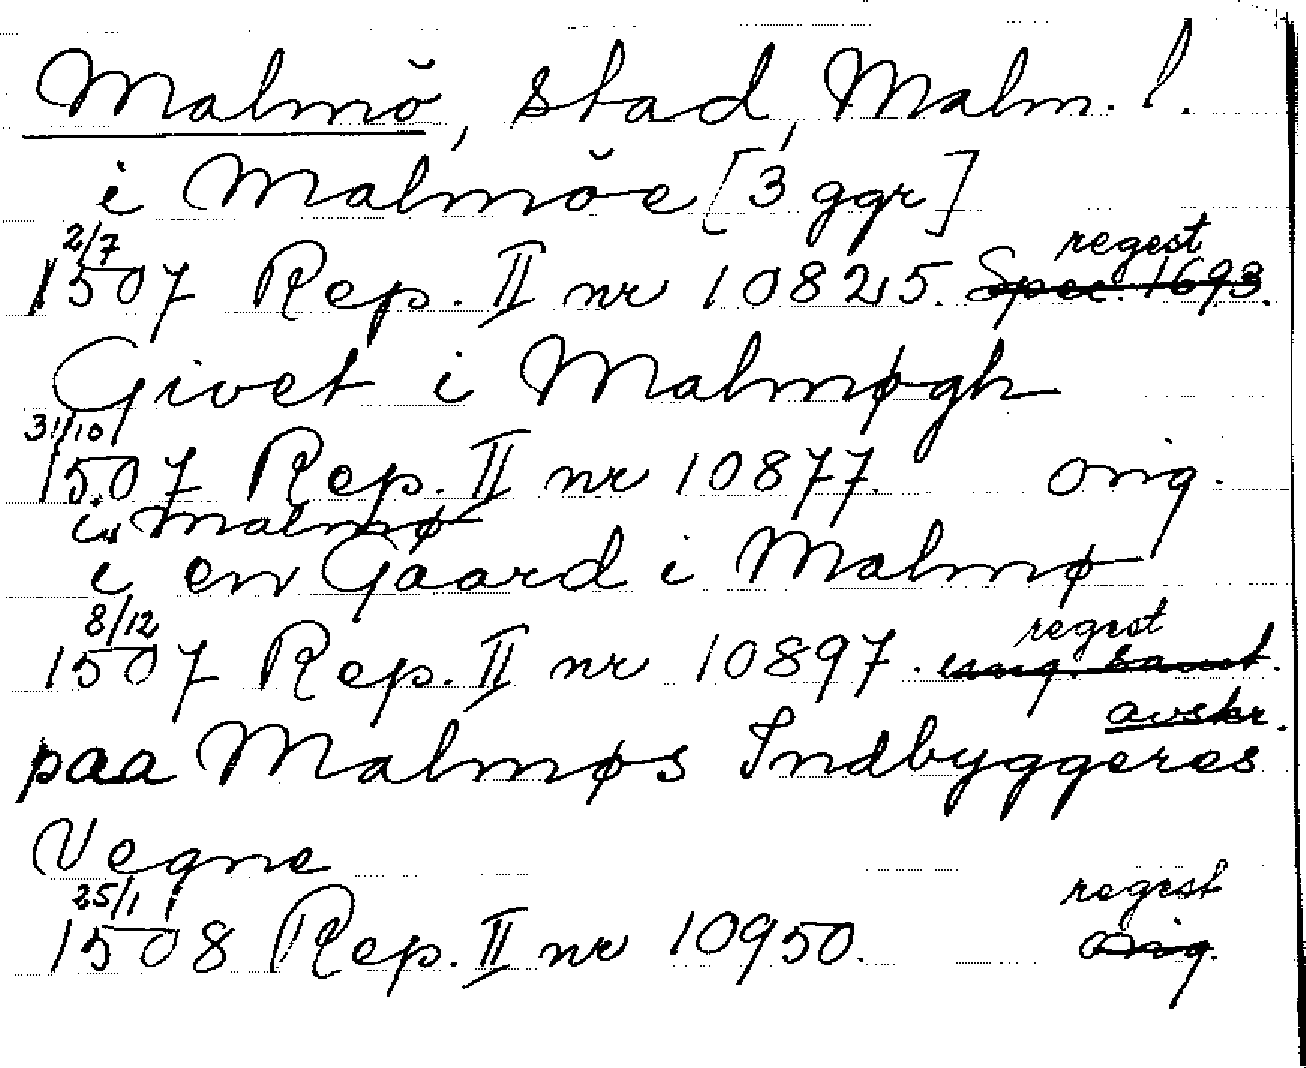 Malmö, stad, Malm. l.
i Malmöe [3 ggr]
2/7 regest
1507 Rep. II nr 10825. Spec. 1693.
Givet i Malmøgh
31/10
1507 Rep. II nr 10877. orig.
i Malmø
i en Gaard i Malmø
8/12 regest
1507 Rep. II nr 10897.
avskr.
paa Malmøs Indbyggeres
Vegne
25/1 regest
1508 Rep. II nr 10950. orig.